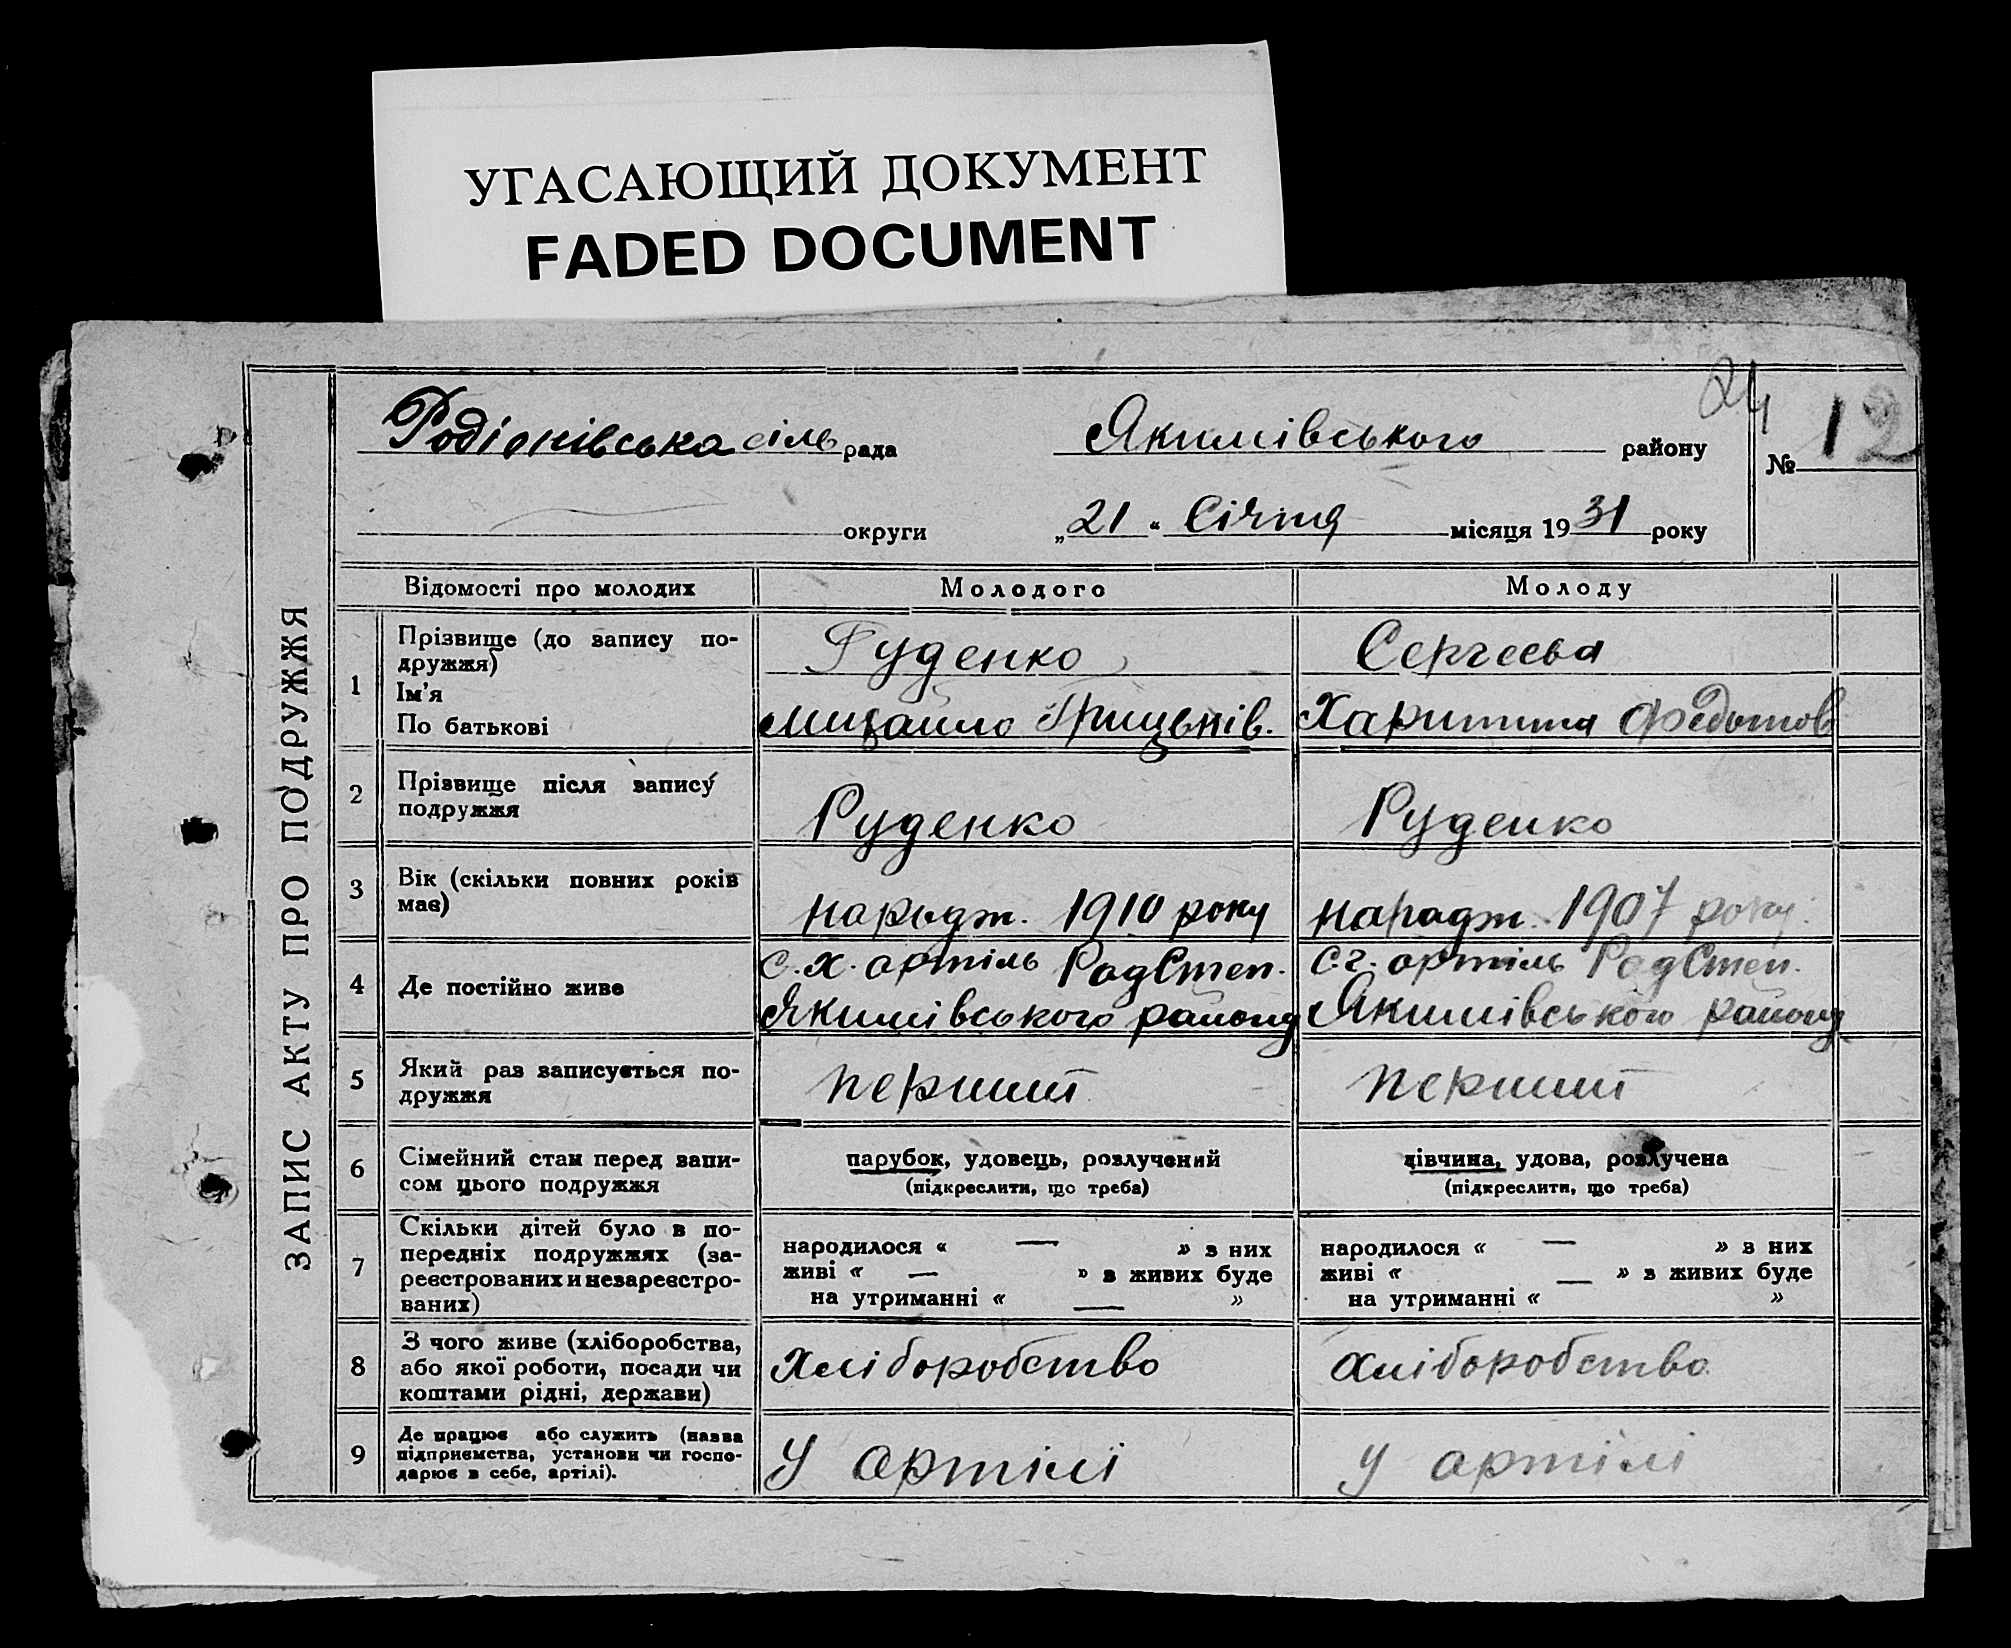 УГАСАЮЩИЙ ДОКУМЕНТ
FADED DOCUMENT
24
Родіонівська сіль рада Якимівського району № 12
округи „21“ Січня місяця 1931 року
ЗАПИС АКТУ ПРО ПОДРУЖЖЯ
Відомості про молодих Молодого Молоду
1 Прізвище (до запису по-
дружжя)
Руденко Сергеева
Ім'я
По батькові
Михайло Грицьків. Харитина Федотов
2 Прізвище після запису
подружжя
Руденко Руденко
3 Вік (скільки повних років
має)
народж. 1910 року народж. 1907 року.
4 Де постійно живе
с.х. артіль РадСтеп. с.г. артіль РадСтеп.
Якимівського району Якимівського району
5 Який раз записується по-
дружжя
перший перший
6 Сімейний стан перед запи-
сом цього подружжя
парубок, удовець, розлучений дівчина, удова, розлучена
(підкреслити, що треба) (підкреслити, що треба)
7 Скільки дітей було в по-
передніх подружжях (за-
реєстрованих и незареєстро-
ваних)
народилося « — » з них народилося « — » з них
живі « — » з живих буде живі « — » з живих буде
на утриманні « — » на утриманні « »
8 З чого живе (хліборобства,
або якої роботи, посади чи
коштами рідні, держави)
хліборобство хліборобство
9 Де працює або служить (назва
підприємства, установи чи госпо-
дарює в себе, артілі).
У артілі У артілі